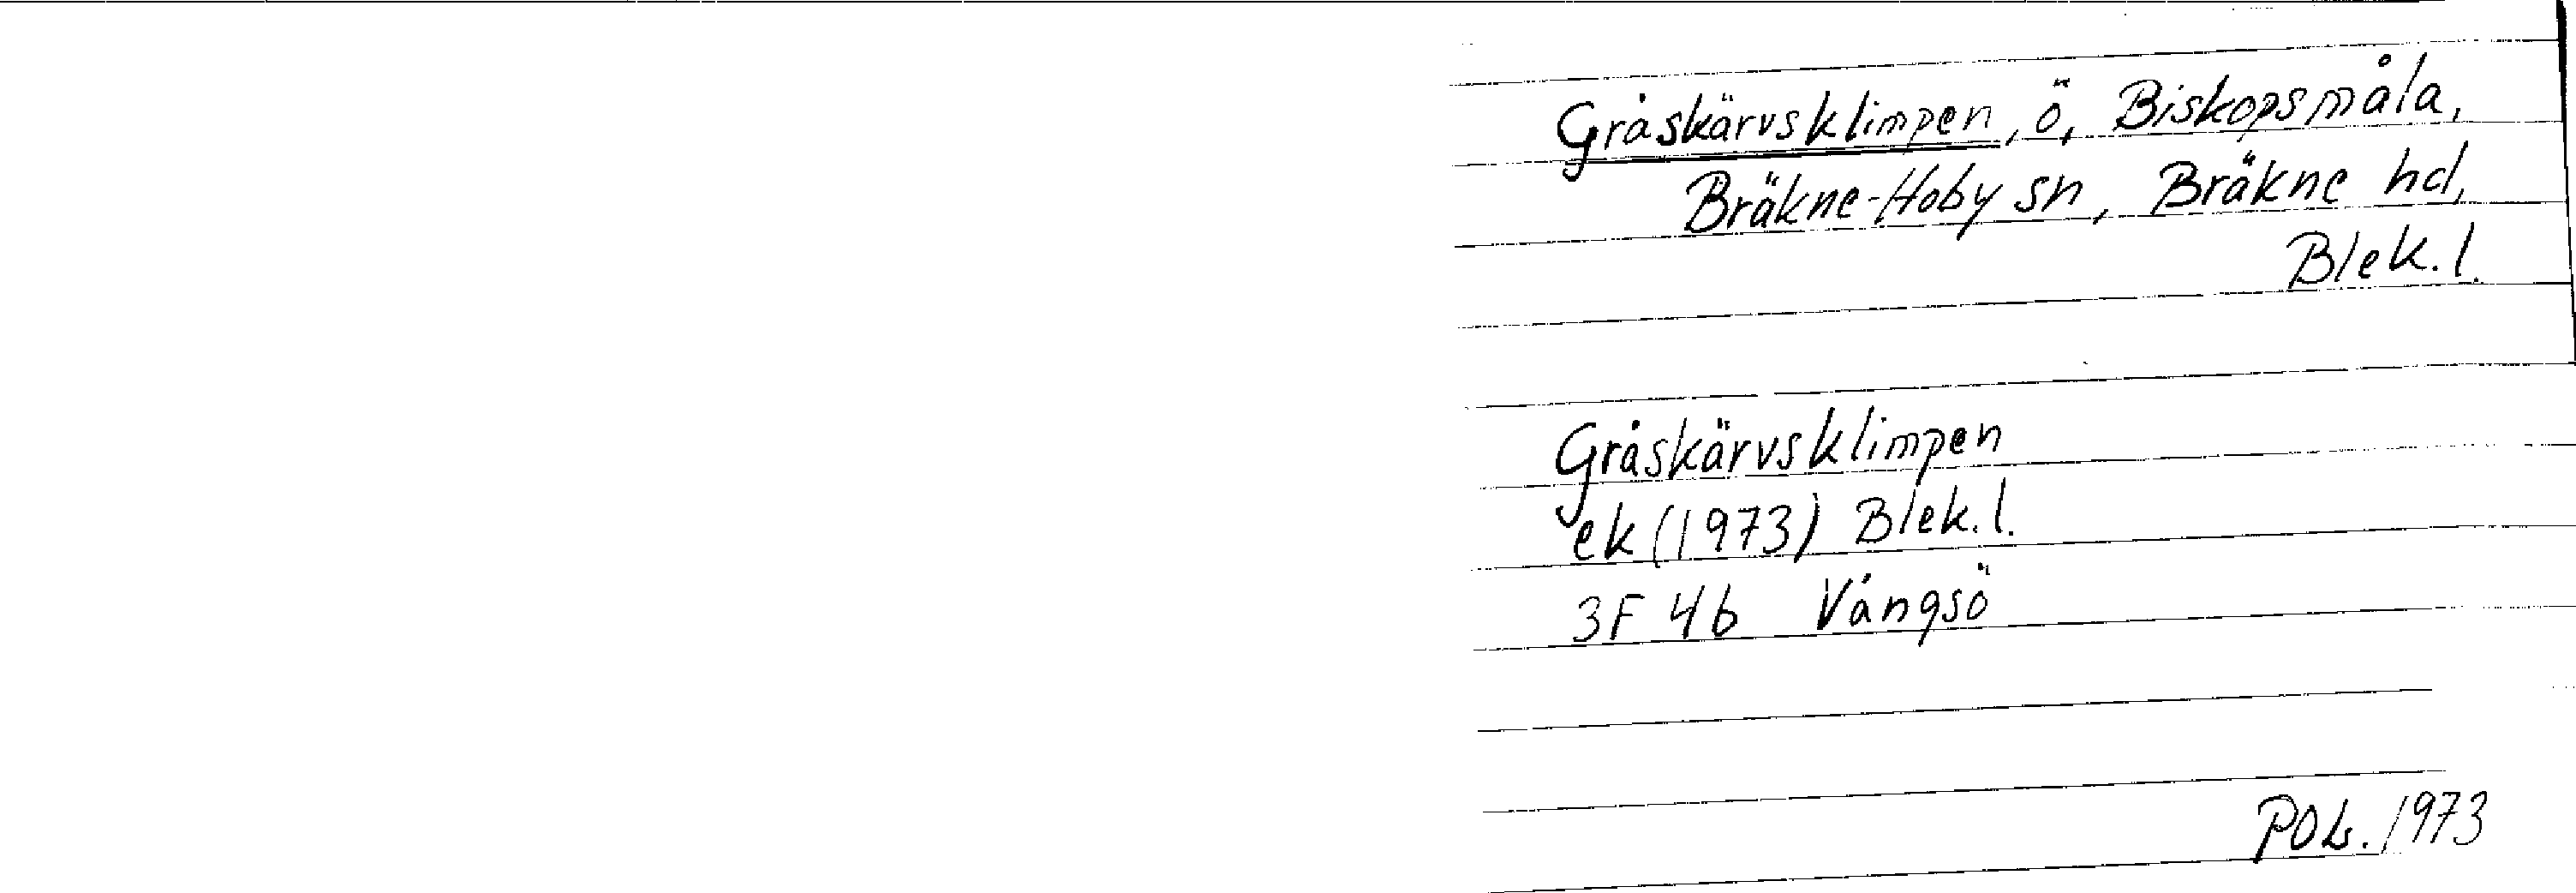 Gråskärvsklimpen, ö, Biskopsmåla,
Bräkne-Hoby sn, Bräkne hd,
Blek.l.
Gråskärvsklimpen
ek (1973) Blek.l.
3F 4b Vångsö
1973